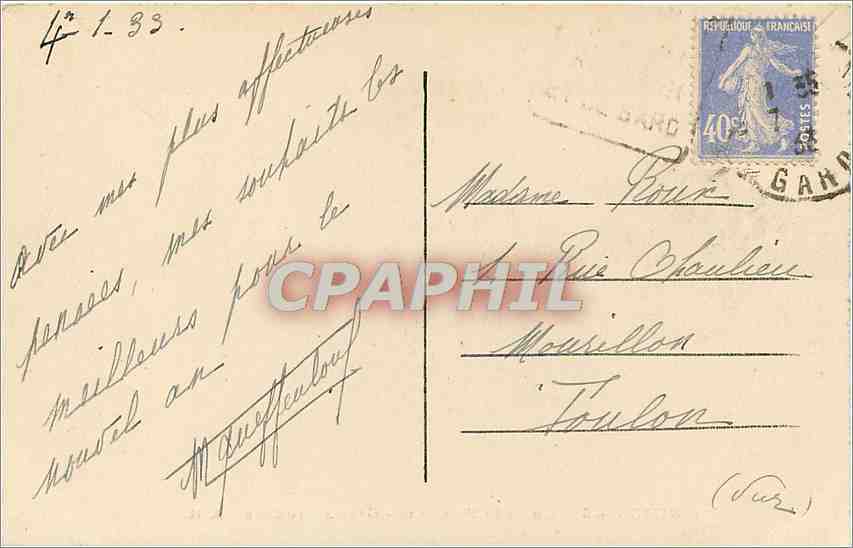 4 1-33.
Avec mes plus affectueuses
pensées, mes souhaits les
meilleurs pour le
nouvel an
REPUBLIQUE FRANÇAISE
40c
POSTES
GARD
Madame Roux
1 Rue Chaulieu
Mourillon
Toulon
(Var)
CPAPHIL